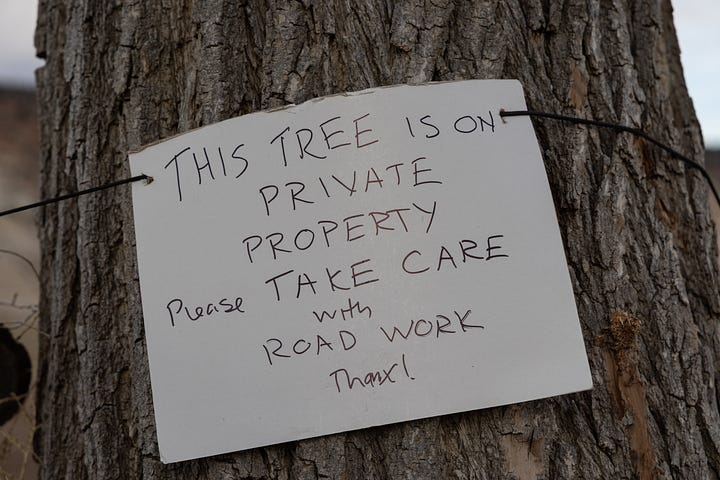 THIS TREE IS ON
PRIVATE
PROPERTY
Please TAKE CARE
with
ROAD WORK
Thanx!